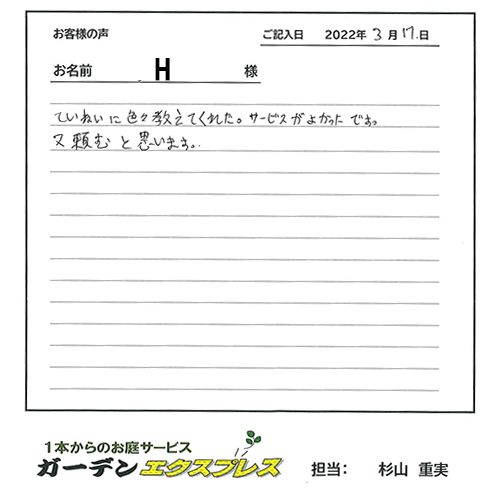 お客様の声
ご記入日 2022年 3月 17.日
お名前 H 様
ていねいに色々教えてくれた。サービスがよかったです。
又頼むと思います。
1本からのお庭サービス
ガーデンエクスプレス 担当: 杉山 重実